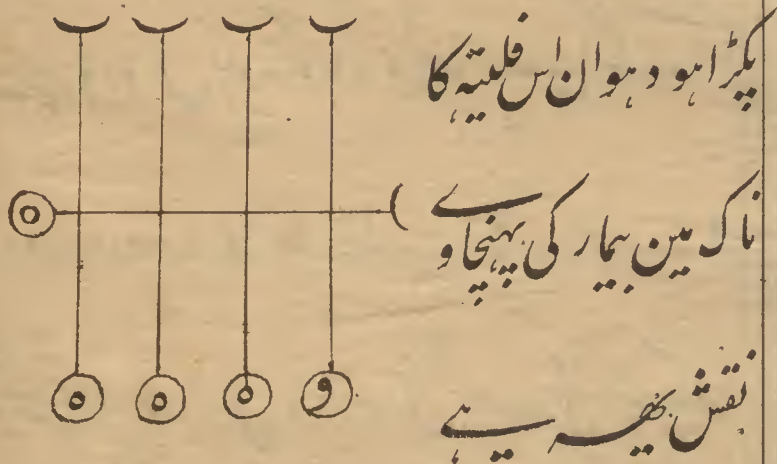 پکڑا ہو دہوان اس فلیتہ کا
ناک مین بیمار کی پہنچاوے
نقش یھہ ہے
ه
و ه ه ه